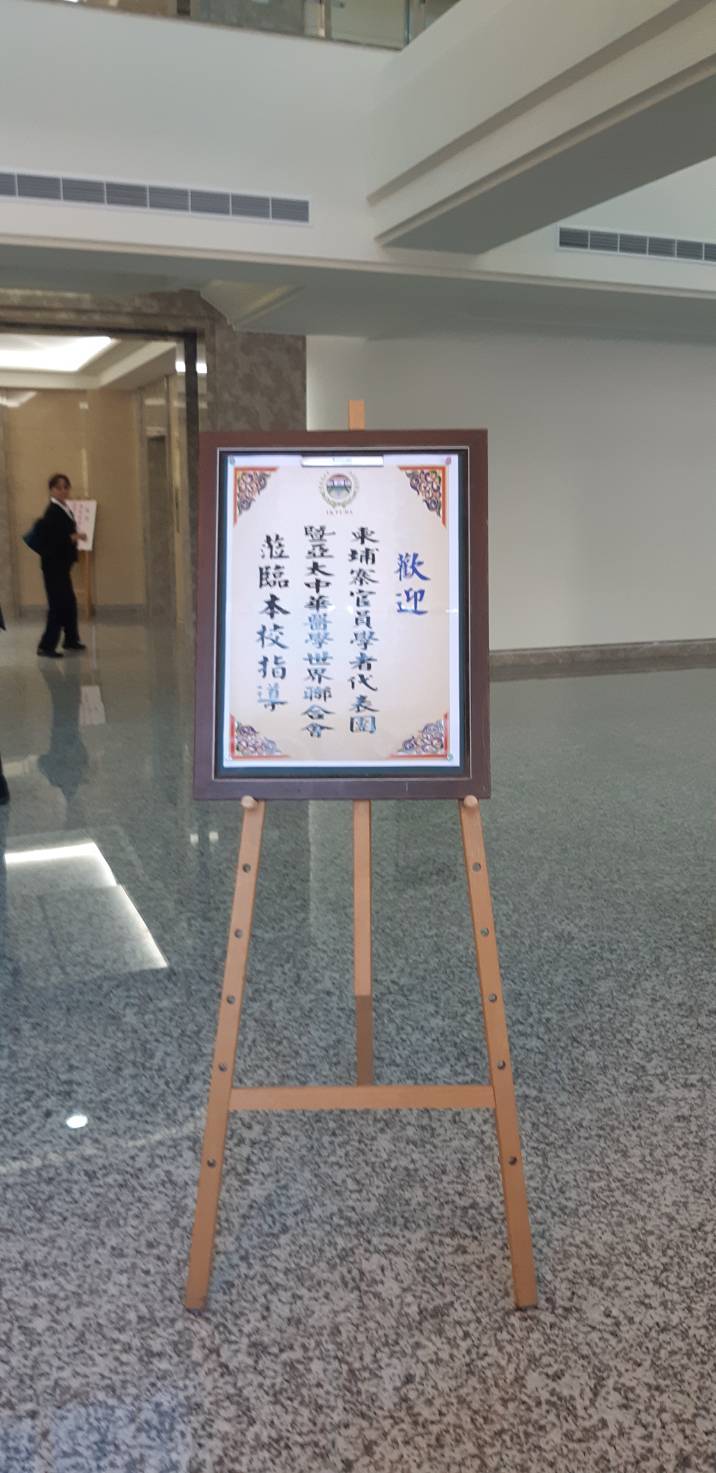 歡迎
柬埔寨官員學者代表團
暨亞太中華醫學世界聯合會
蒞臨本校指導